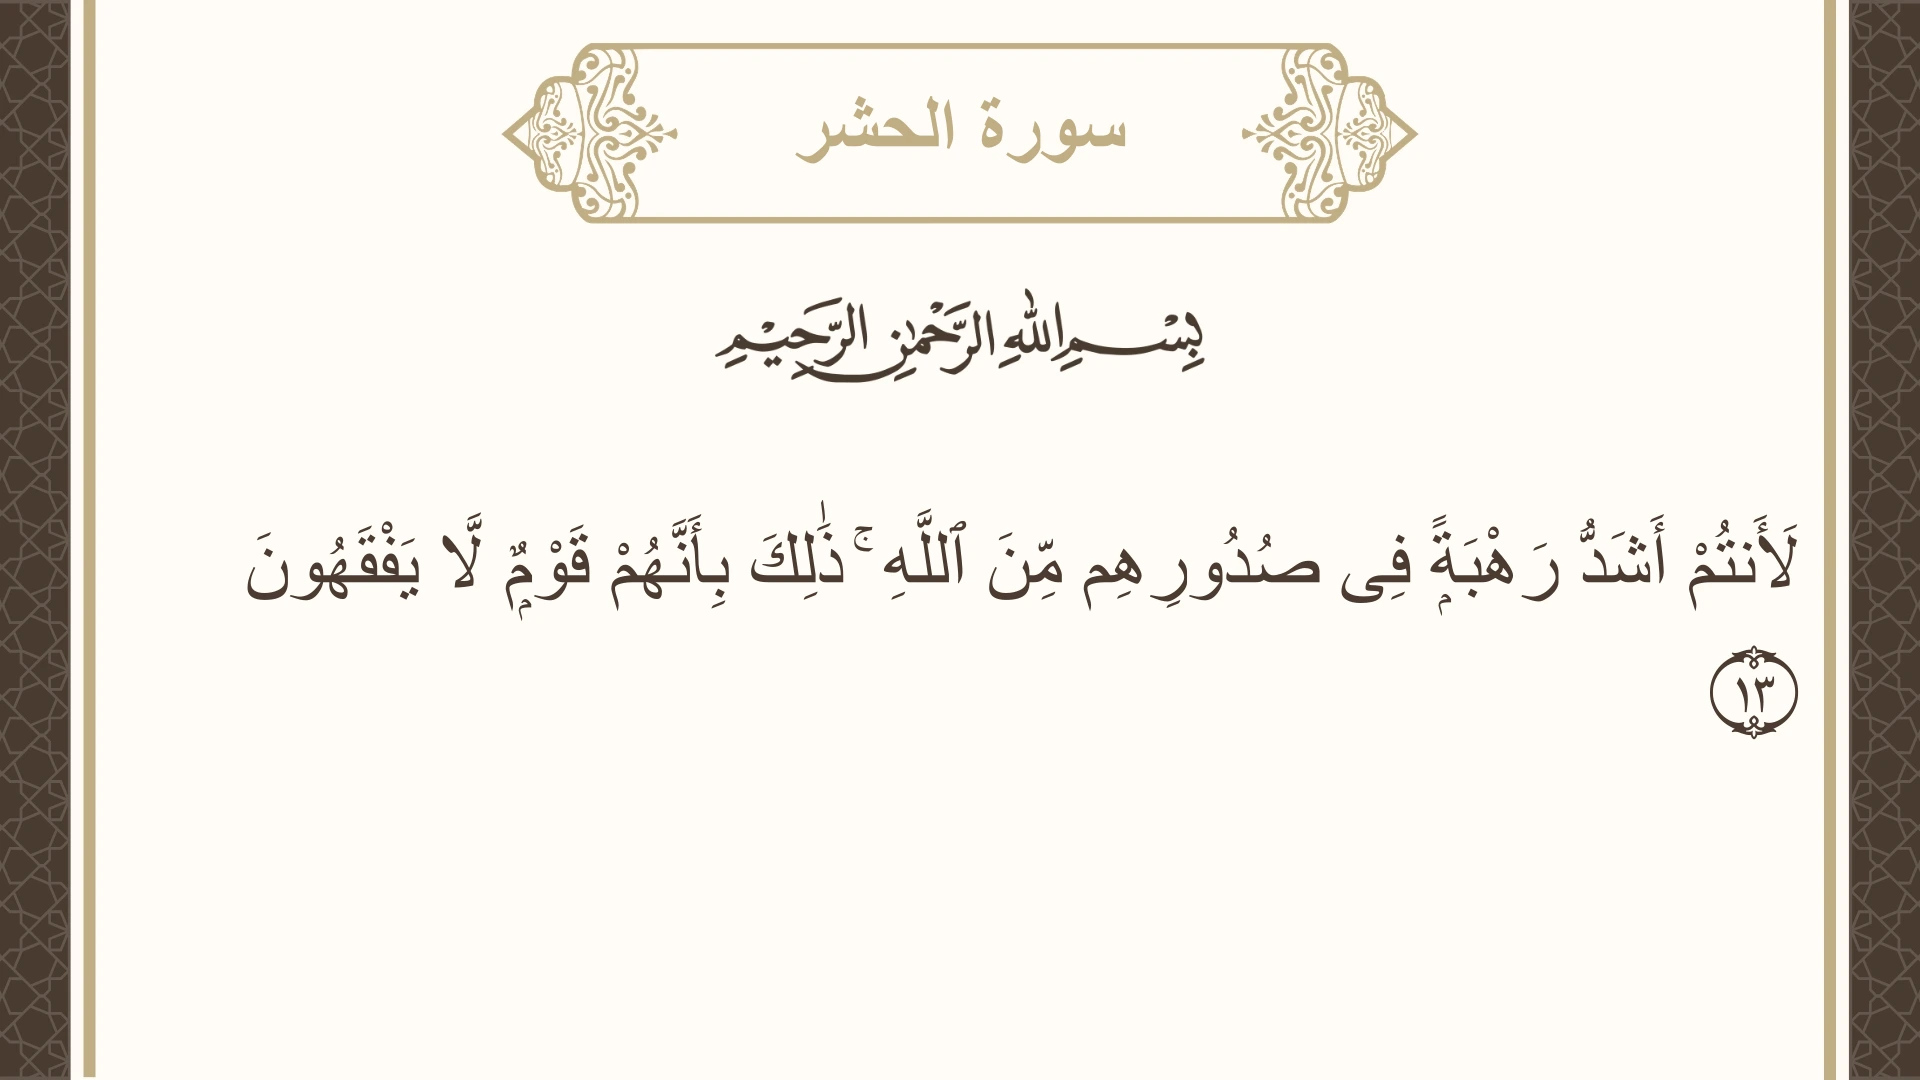 سورة الحشر
بِسْمِ اللهِ الرَّحْمٰنِ الرَّحِيْمِ
لَأَنتُمْ أَشَدُّ رَهْبَةًۭ فِى صُدُورِهِم مِّنَ ٱللَّهِ ۚ ذَٰلِكَ بِأَنَّهُمْ قَوْمٌۭ لَّا يَفْقَهُونَ
١٣